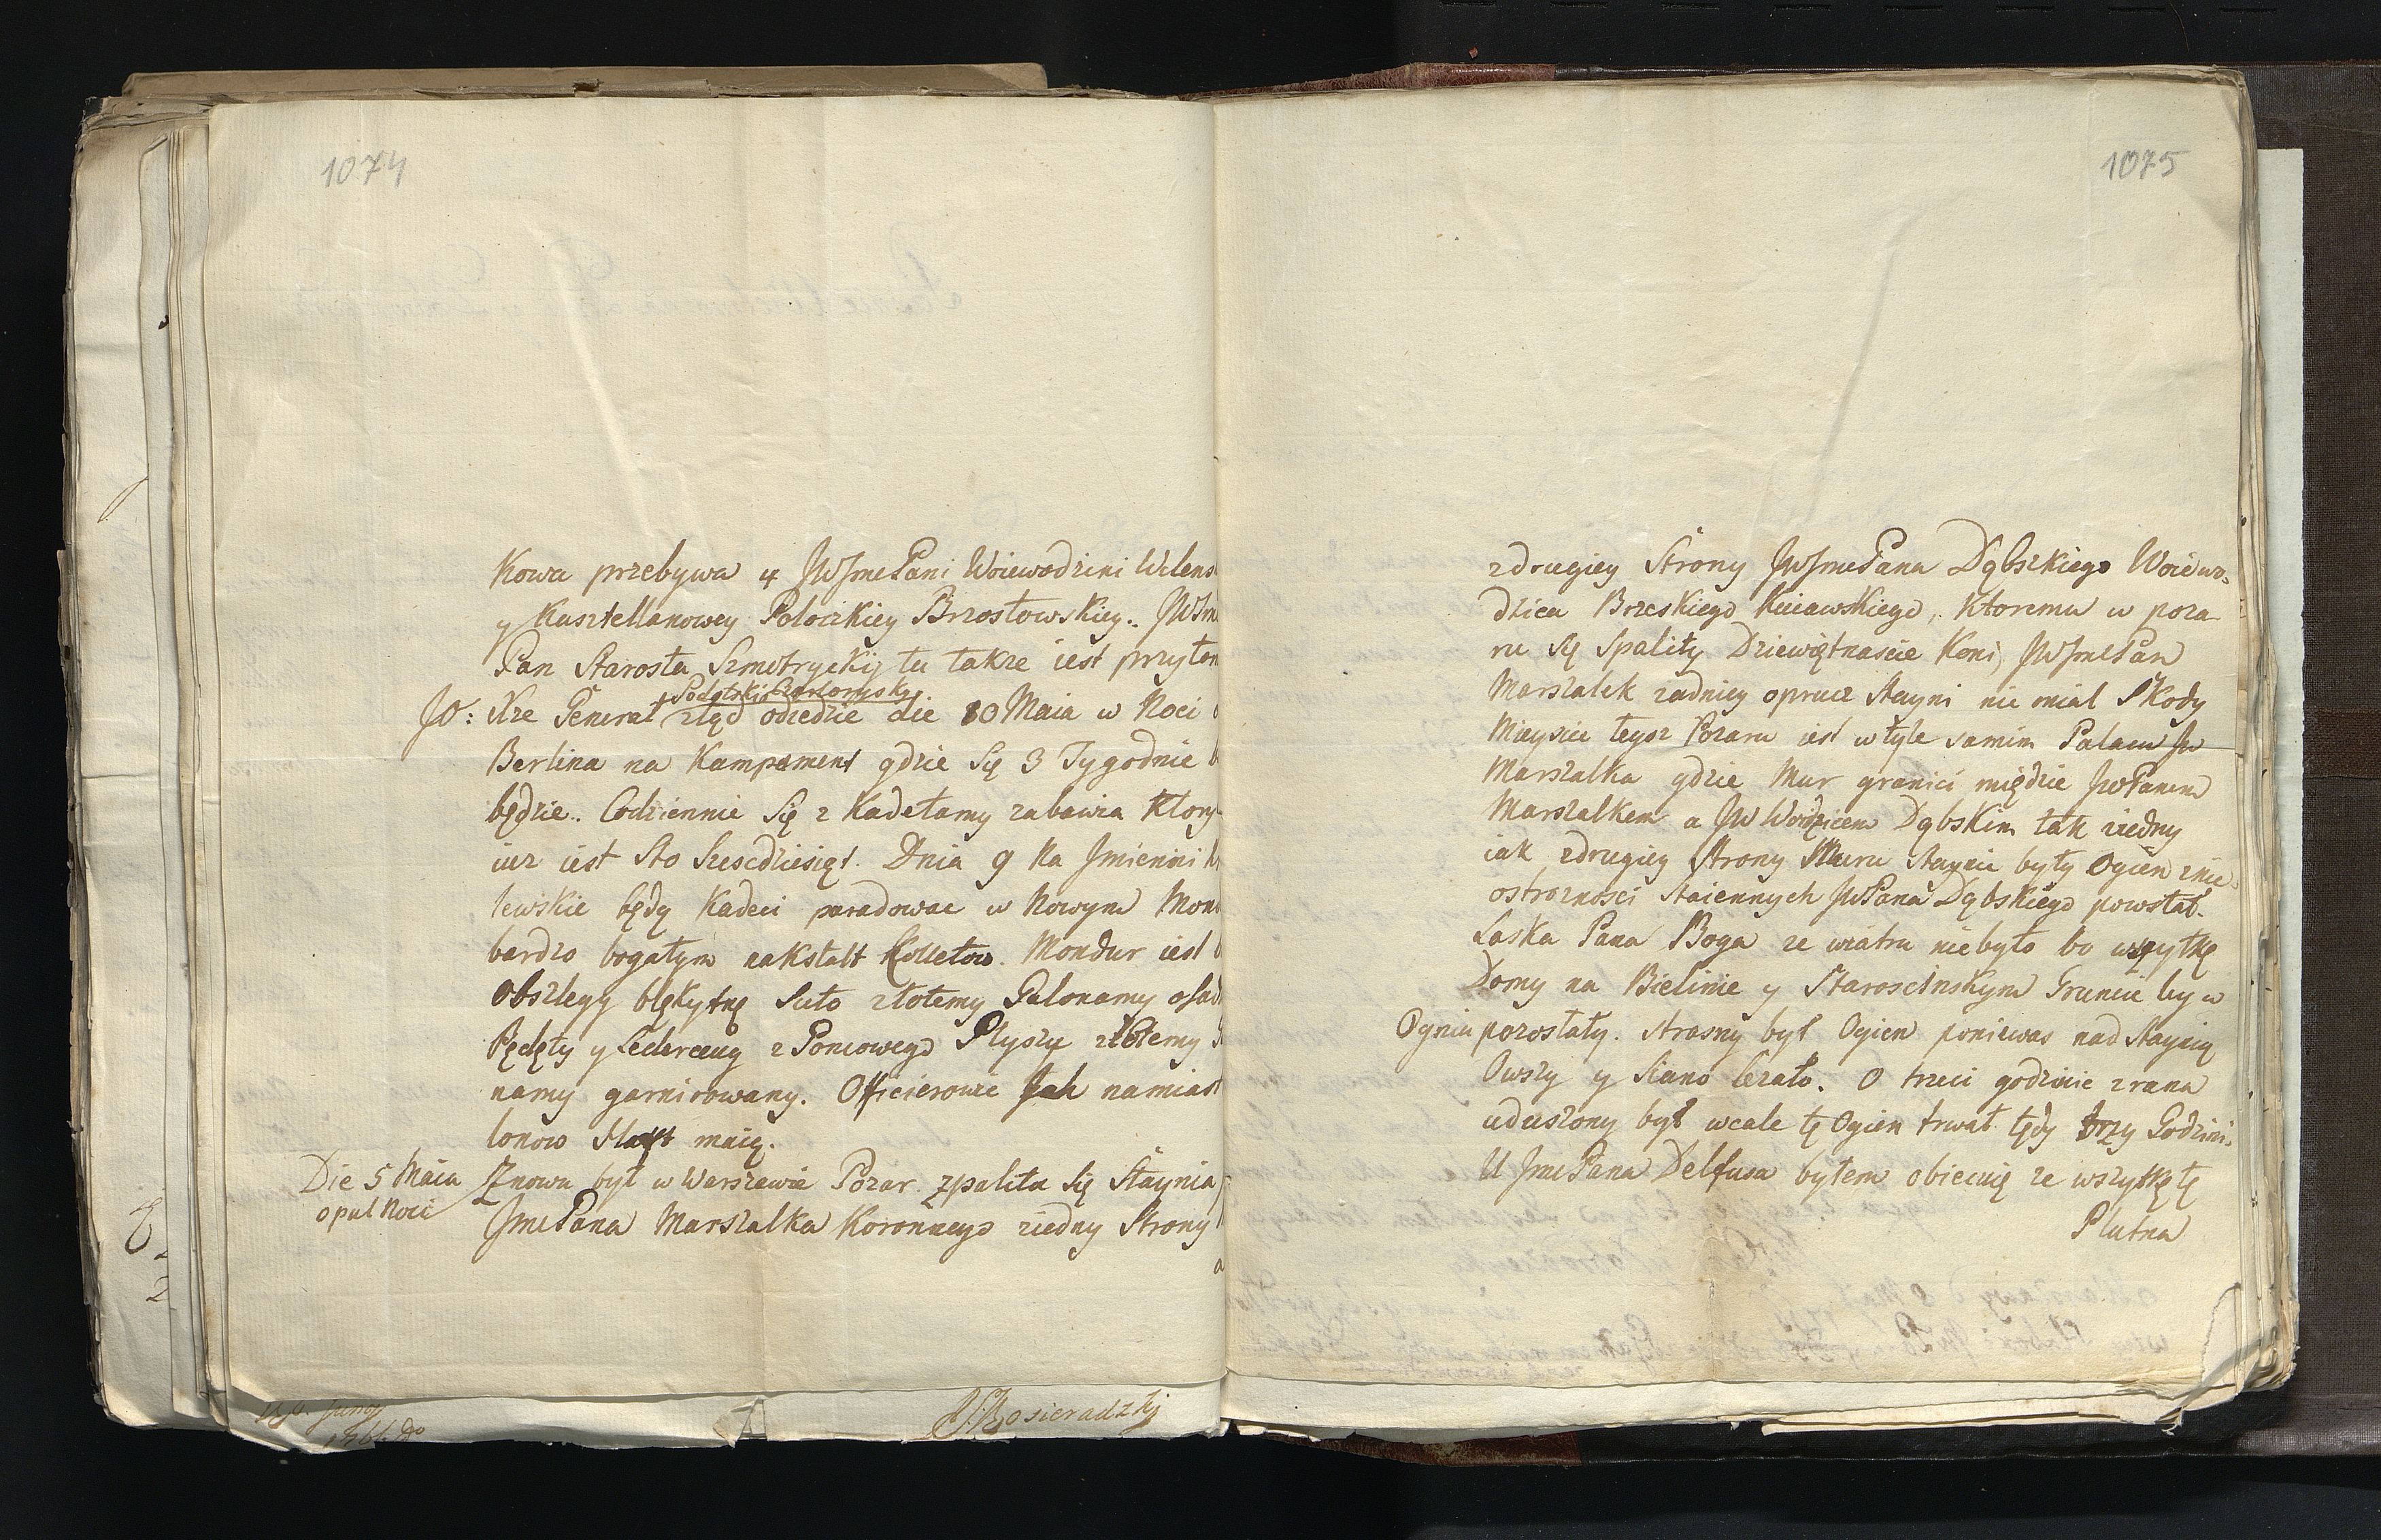 1074
Kowa przebywa u JWJmePani Woiewodzini Wilens
y Kasztellanowey Polockiey Brzostowskiey. JWJm
Pan Starosta Szmotrycki tu takze iest przyton
Podolski Czartoryski
JO: Xze Generał ztąd odiedzie die 10 Maia w Noci
Berlina na Kampement gdzie Się 3 Tygodnie b
będzie. Codziennie Się z Kadetamy zabawia Ktory
iuz iest Sto Szescdziesiąt. Dnia 9 na Jmienini k
lewskie będą Kadeci paradowac w Nowym Mon
bardzo bogatym nakstalt Kolletow. Mondur iest
Obszlegy błękytnę Suto złotemy Galonamy osad
Pędęty y Lederweng z Ponsowego Plyszu złotemy
namy garnirowany. Officierowie Jak namiast
lonow Haft maią.
Die 5 Maia Znowu był w Warszawie Pozar zpaliła Się Staynia
o pul Noci JmePana Marszalka Koronnego ziedny Strony
a
1075
zdrugiey Strony JWJmePana Dąbskiego Woiewo-
dzica Brzeskiego Kuiawskiego, Ktoremu w poza
ru Się Spality Dziewiętnascie Koni, JWJmePan
Marszalek zadniey oprucz Stayni nie mial Skody
Mieysce tegoz Pozaru iest w tyle samim Palacu Jw
Marszalka gdzie Mur granici międzie JwPanem
Marszalkem a JW Woidzicem Dąbskim tak ziedny
iak zdrugiey Strony Muru Staynie były Ogien znie
ostroznosci Staiennych JWPana Dąbskiego powstał.
Laska Pana Boga ze wiatru niebyło bo wszytkę
Domy na Bielinie y Staroscinskym Gruncie by w
Ogniu pozostały. Strasny był Ogien poniewas nad Staynią
Owsy y Siano lezało. O trzeci godzinie z rana
uduszony był wcale tę Ogien trwał tędy trzy Godzini.
U JmePana Delfusa byłem obiecuię ze wszytkę tę
Plutna
JKosieradzkj